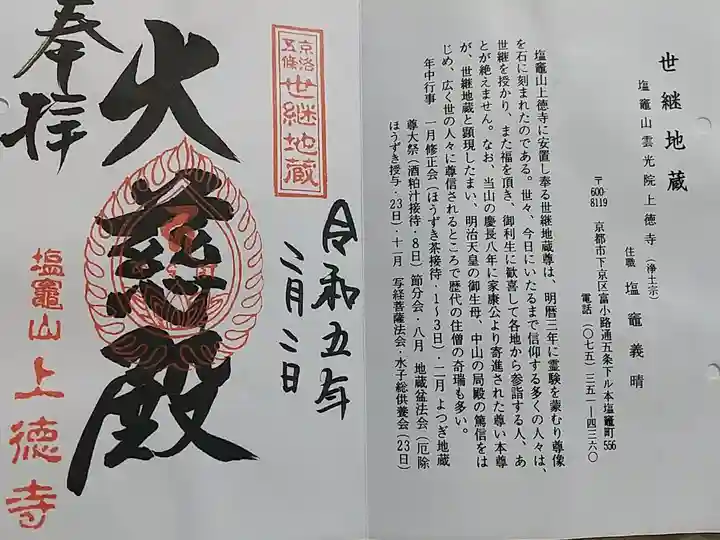 世継地蔵
塩竈山雲光院上徳寺（浄土宗）
住職 塩竈義晴
〒600-8119 京都市下京区富小路通五条下ル本塩竈町556
電話（〇七五）三五一―四三六〇
塩竈山上徳寺に安置し奉る世継地蔵尊は、明暦三年に霊験を蒙むり尊像
を石に刻まれたのである。世々、今日にいたるまで信仰する多くの人々は、
世継を授かり、また福を頂き、御利生に歓喜して各地から参詣する人、あ
とが絶えません。なお、当山の慶長八年に家康公より寄進された尊い本尊
が、世継地蔵と顕現したまい、明治天皇の御生母、中山の局殿の篤信をは
じめ、広く世の人々に尊信されるところで歴代の住僧の奇瑞も多い。
年中行事 一月修正会（ほうずき茶接待・1〜3日）・二月 よつぎ地蔵
尊大祭（酒粕汁接待・8日）節分会・八月 地蔵盆法会（厄除
ほうずき授与・23日）・十一月 写経菩薩法会・水子総供養会（23日）
京洛五條 世継地蔵
令和五年
二月二日
奉拝
塩竈山上徳寺